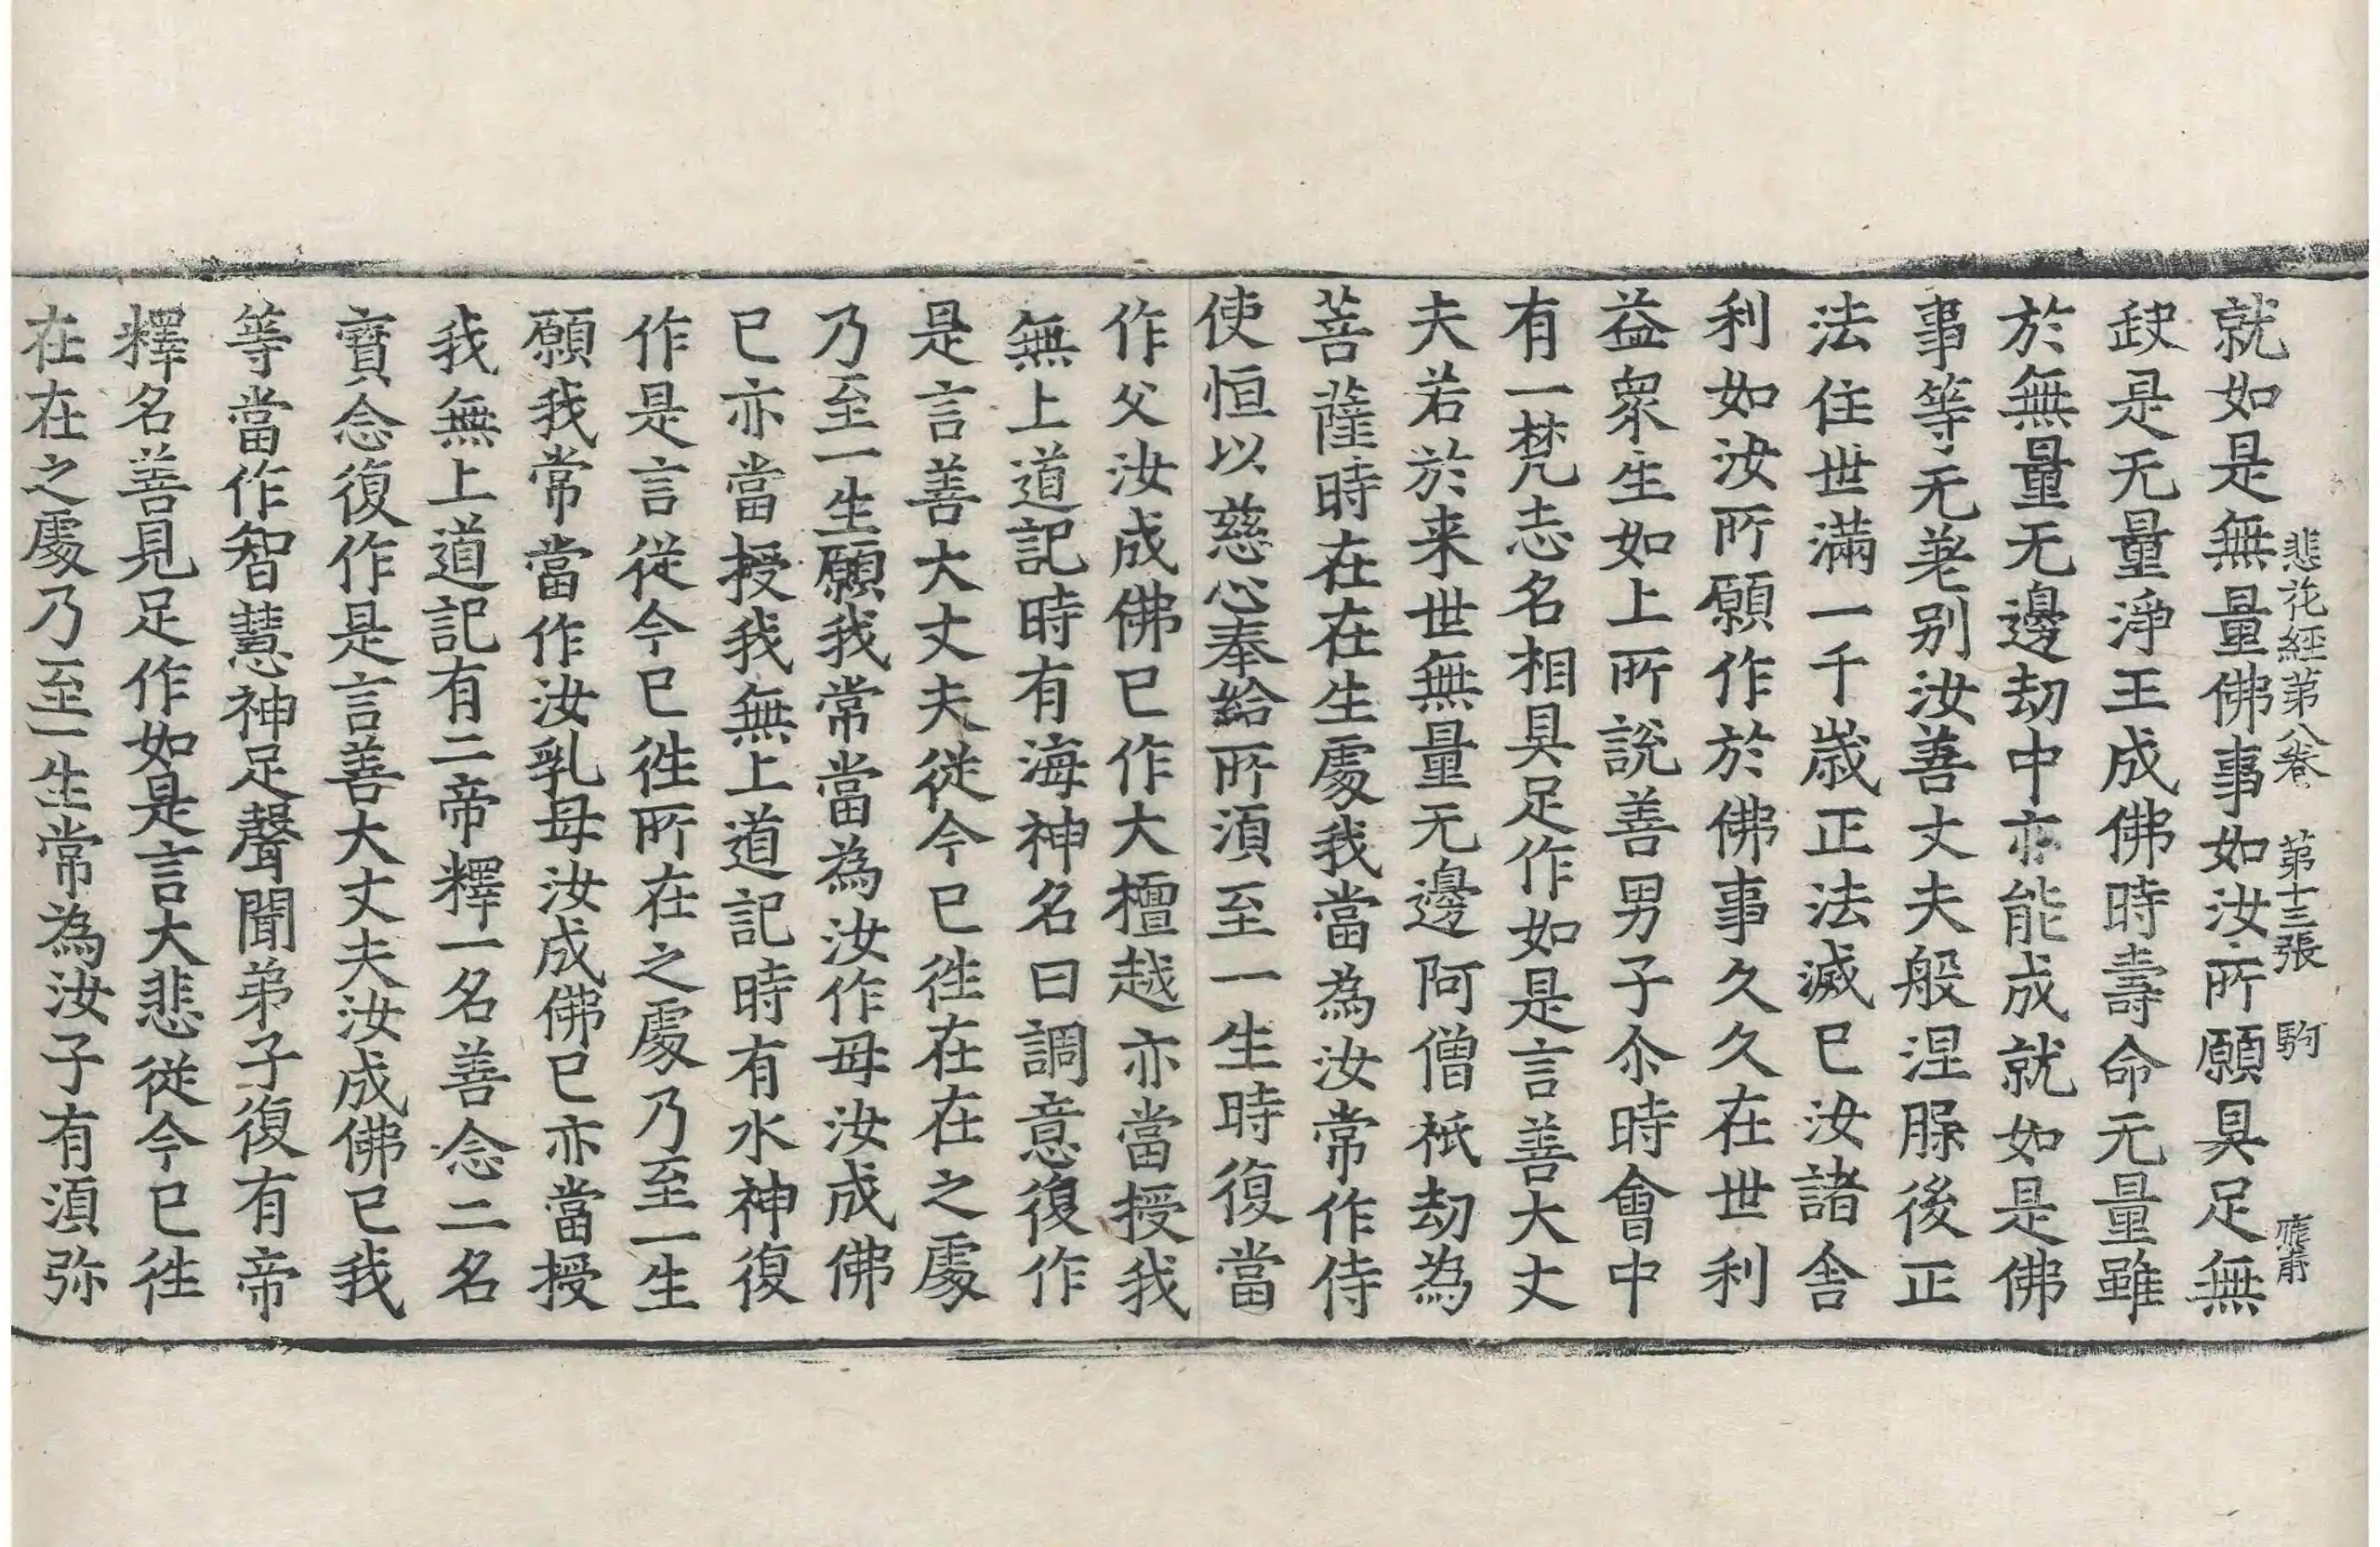 悲花經第八卷 第十三張 駒
就如是無量佛事如汝所願具足無
缺是无量淨王成佛時壽命无量雖
於無量无邊劫中亦能成就如是佛
事等无差别汝善丈夫般涅脲後正
法住世滿一千歲正法滅已汝諸舎
利如汝所願作於佛事久久在世利
益衆生如上所說善男子尒時會中
有一梵志名相具足作如是言善大丈
夫若於来世無量无邊阿僧祇劫為
菩薩時在在生處我當為汝常作侍
使恒以慈心奉給所湏至一生時復當
作父汝成佛已作大檀越亦當授我
無上道記時有海神名曰調意復作
是言善大丈夫從今已往在在之處
乃至一生願我常當為汝作母汝成佛
已亦當授我無上道記時有水神復
作是言從今已往所在之處乃至一生
願我常當作汝乳母汝成佛已亦當授
我無上道記有二帝釋一名善念二名
寶念復作是言善大丈夫汝成佛已我
等當作智慧神足聲聞弟子復有帝
釋名善見足作如是言大悲從今已往
在在之處乃至一生常為汝子有湏弥